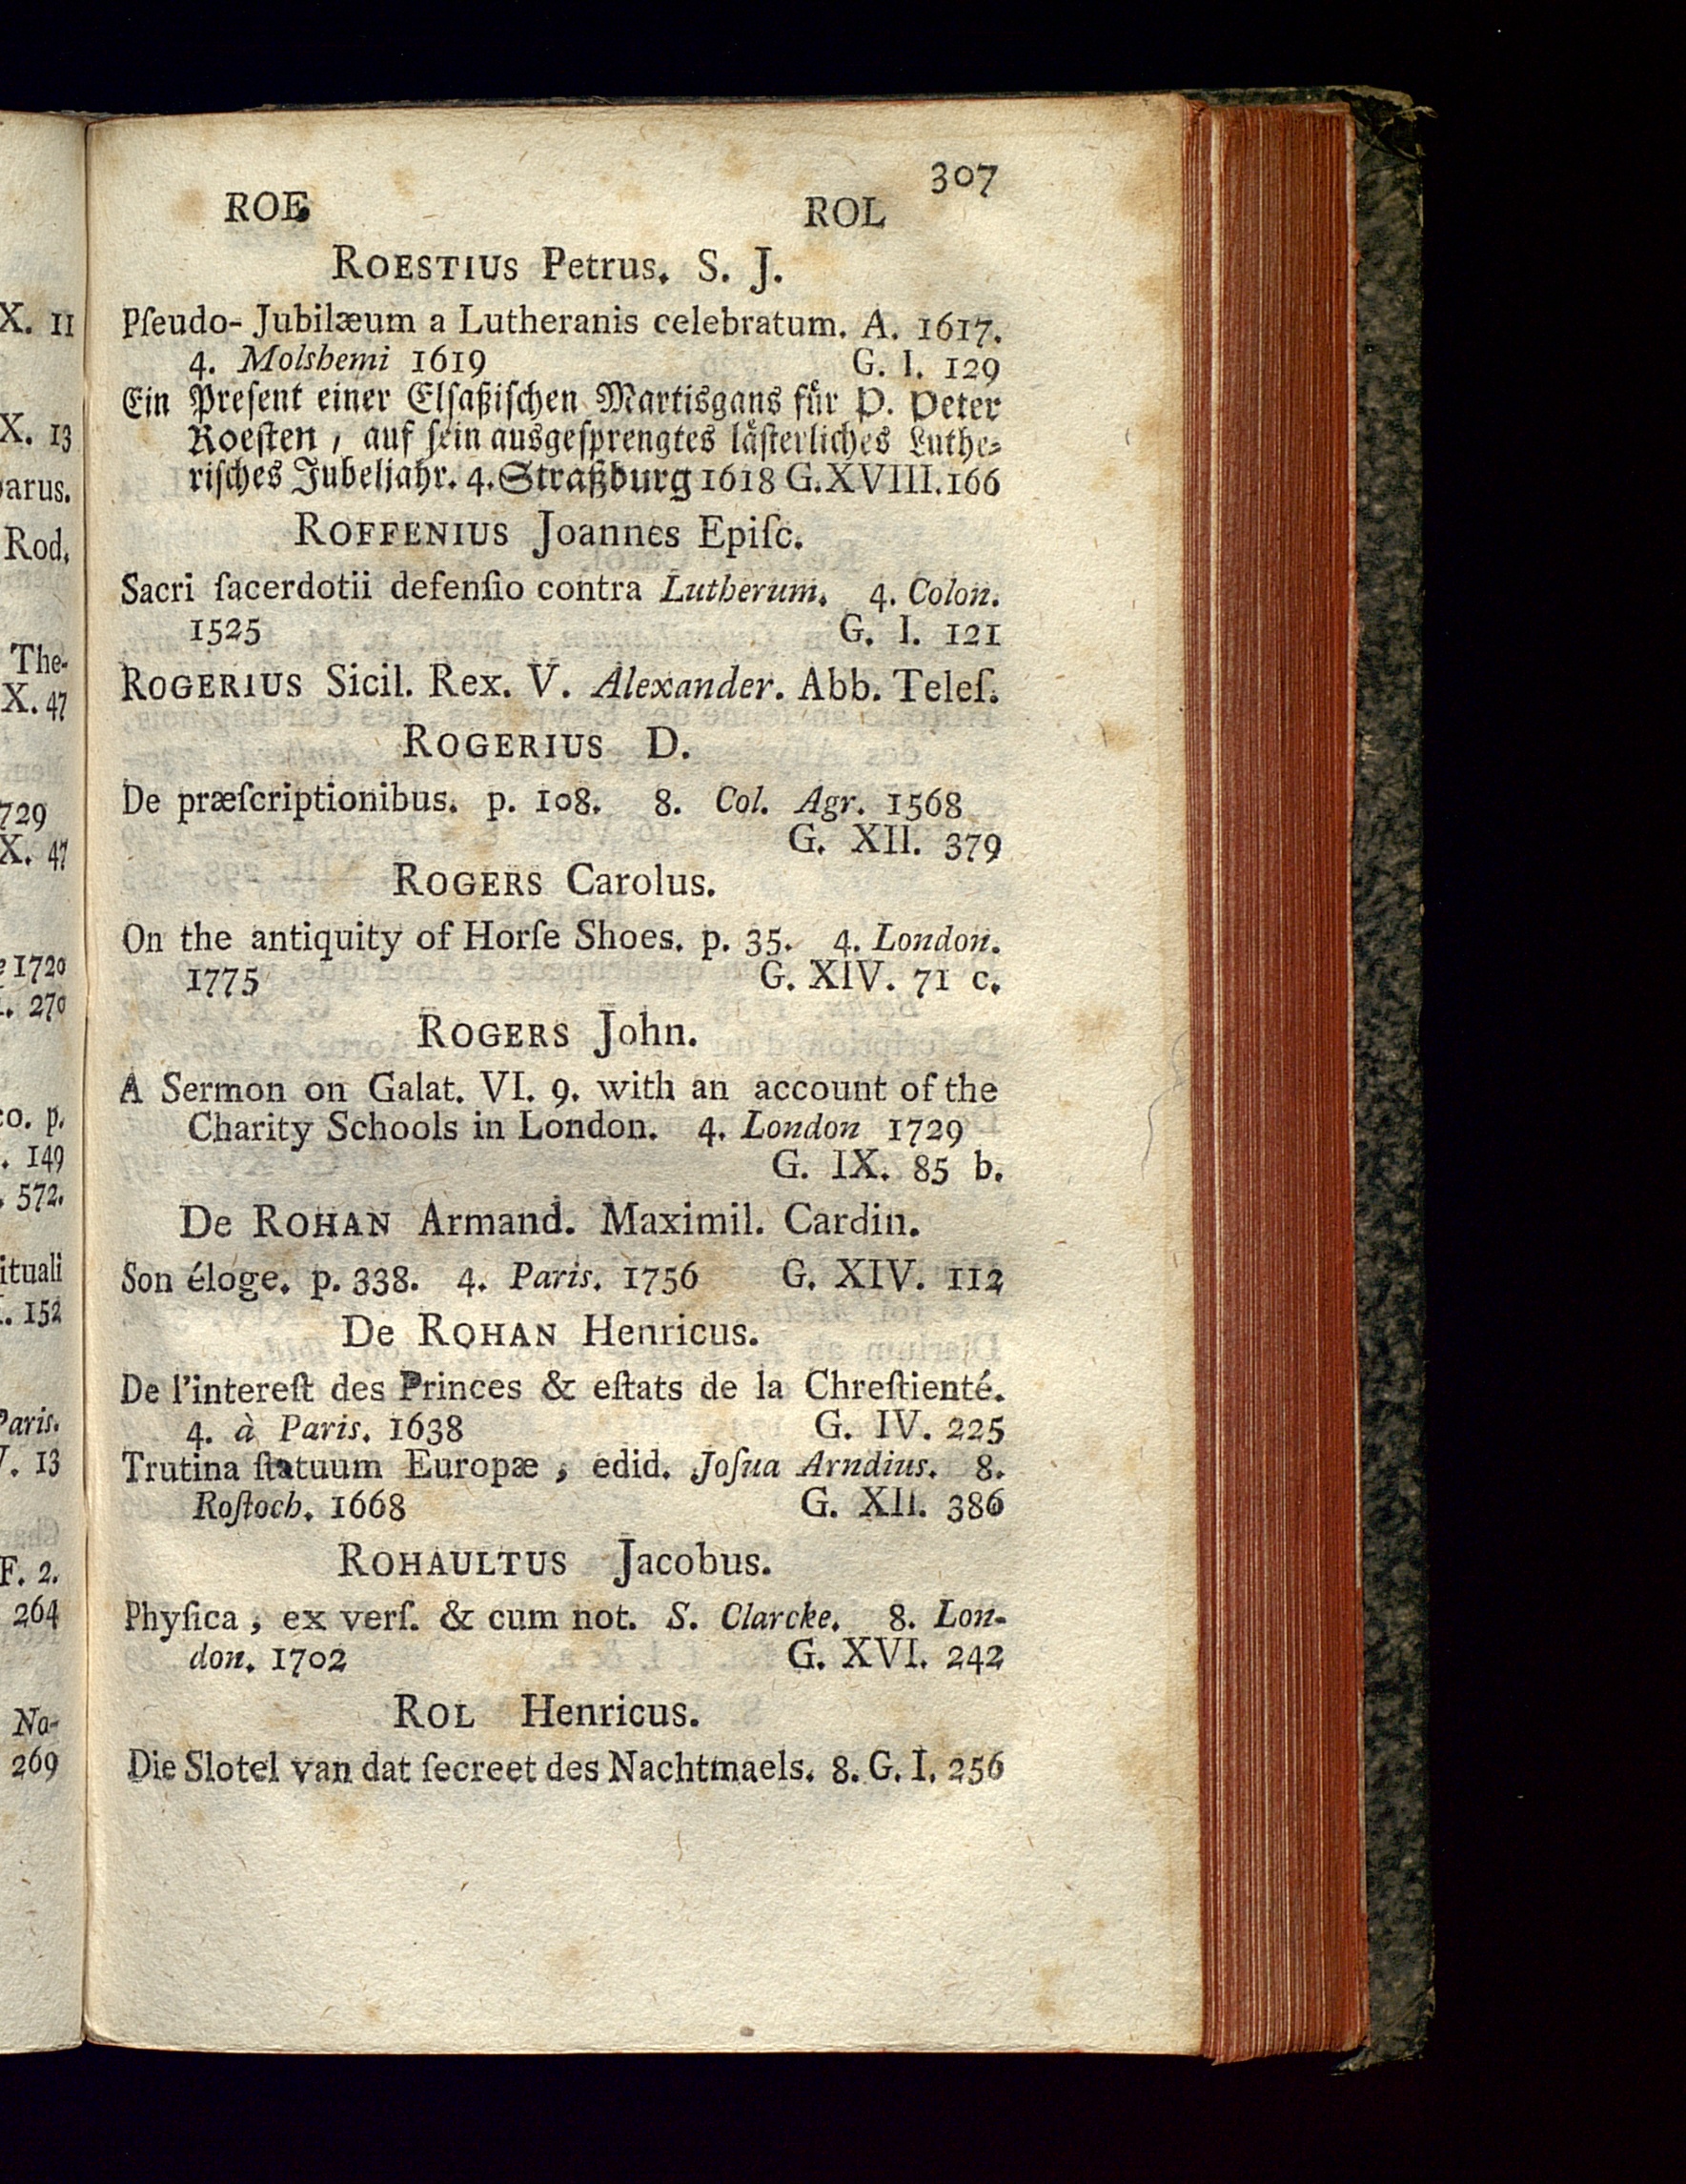 307
ROE ROL
ROESTIUS Petrus. S. J.
Pſeudo-Jubilæum a Lutheranis celebratum. A. 1617.
4. Molshemi 1619 G. I. 129
Ein Preſent einer Elſaßiſchen Martisgans für P. Peter
Roeſten, auf ſein ausgeſprengtes läſterliches Luthe-
riſches Jubeljahr. 4. Straßburg 1618 G. XVIII. 166
ROFFENIUS Joannes Epiſc.
Sacri ſacerdotii defenſio contra Lutherum. 4. Colon.
1525 G. I. 121
ROGERIUS Sicil. Rex. V. Alexander. Abb. Teleſ.
ROGERIUS D.
De præſcriptionibus. p. 108. 8. Col. Agr. 1568
G. XII. 379
ROGERS Carolus.
On the antiquity of Horſe Shoes. p. 35. 4. London.
1775 G. XIV. 71 c.
ROGERS John.
A Sermon on Galat. VI. 9. with an account of the
Charity Schools in London. 4. London 1729
G. IX. 85 b.
De ROHAN Armand. Maximil. Cardin.
Son éloge. p. 338. 4. Paris. 1756 G. XIV. 112
De ROHAN Henricus.
De l'intereſt des Princes & eſtats de la Chreſtienté.
4. à Paris. 1638 G. IV. 225
Trutina ſtatuum Europæ, edid. Joſua Arndius. 8.
Roſtoch. 1668 G. XII. 386
ROHAULTUS Jacobus.
Phyſica, ex verſ. & cum not. S. Clarcke. 8. Lon-
don. 1702 G. XVI. 242
ROL Henricus.
Die Slotel van dat ſecreet des Nachtmaels. 8. G. I. 256
X. 11
X. 13
arus.
Rod.
The-
X. 47
729
X. 47
1720
270
co. p.
. 149
572.
ituali
. 152
Paris.
13
F. 2.
264
Na-
269